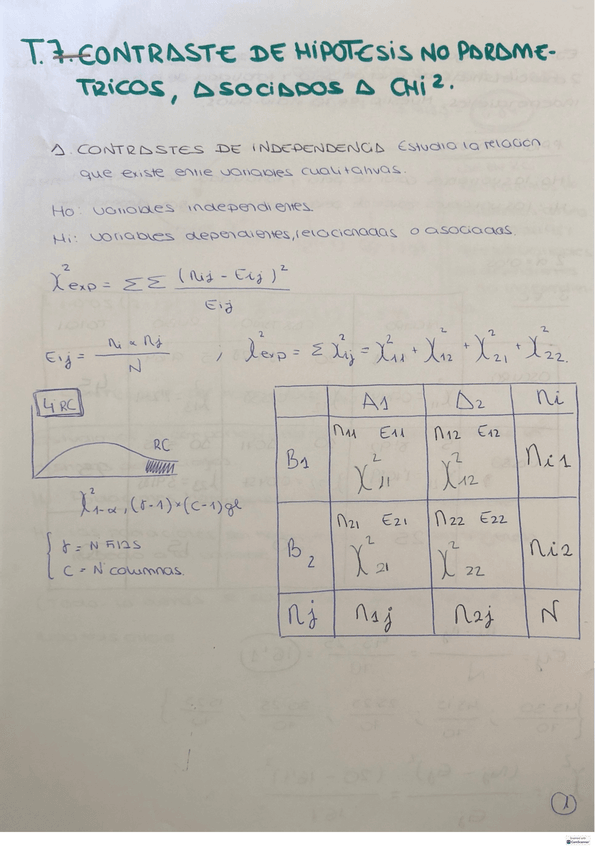 T.7.CONTRASTE DE HIPOTESIS NO PARAME-
TRICOS, ASOCIADOS A CHI².
1. CONTRASTES DE INDEPENDENCIA Estudia la relacion
que existe entre variables cualitativas.
Ho: variables independientes.
Hi: variables dependientes, relacionadas o asociadas.
χ²exp = ΣΣ (nij - Eij)² / Eij
Eij = ni × nj / N ; χ²exp = Σ χ²ij = χ²11 + χ²12 + χ²21 + χ²22.
4: RC
RC
χ²1-α, (r-1)*(c-1)gl
r = Nº filas
C = Nº columnas.
A1 A2 ni
B1 n11 E11 χ²11 n12 E12 χ²12 ni1
B2 n21 E21 χ²21 n22 E22 χ²22 ni2
nj n1j n2j N
1